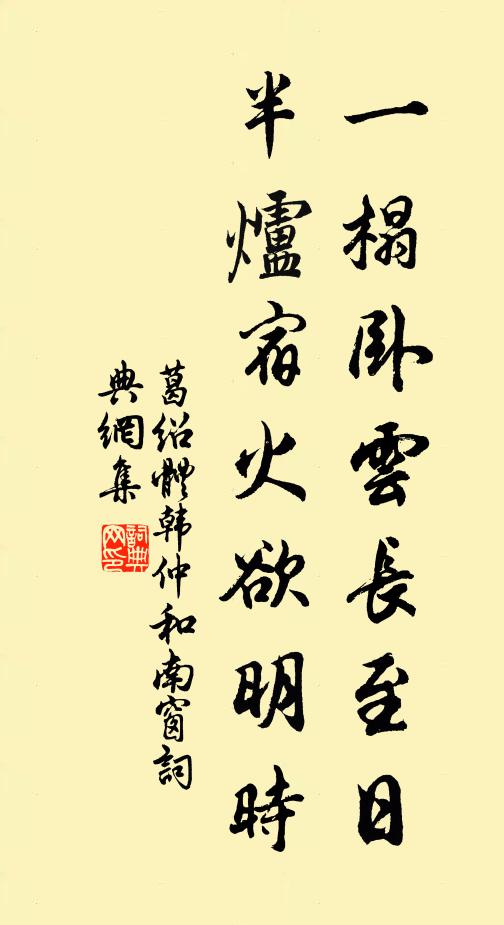 一榻臥雲長至日
半爐宿火欲明時
葛紹體韩仲和南窗詞
典網集
詞典
网印